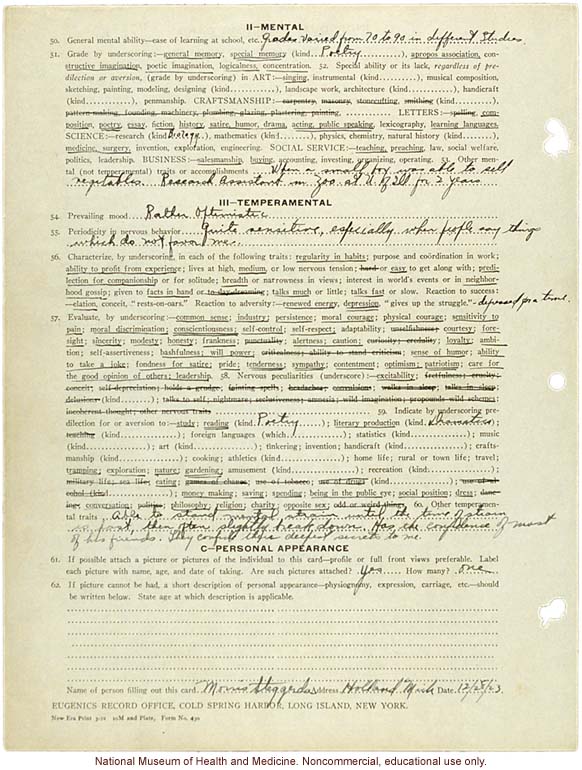 II—MENTAL
50. General mental ability—ease of learning at school, etc. Grades varied from 70 to 90 in different studies.
51. Grade by underscoring:—general memory, special memory (kind Poetry), apropos association, con-
structive imagination, poetic imagination, logicalness, concentration. 52. Special ability or its lack, regardless of pre-
dilection or aversion, (grade by underscoring) in ART:—singing, instrumental (kind), musical composition,
sketching, painting, modeling, designing (kind), landscape work, architecture (kind), handicraft
(kind), penmanship. CRAFTSMANSHIP:—carpentry, masonry, stonecutting, smithing (kind),
pattern making, founding, machinery, plumbing, glazing, plastering, painting, LETTERS:—spelling, com-
position, poetry, essay, fiction, history, satire, humor, drama, acting, public speaking, lexicography, learning languages.
SCIENCE:—research (kind Biology), mathematics (kind), physics, chemistry, natural history (kind),
medicine, surgery, invention, exploration, engineering. SOCIAL SERVICE:—teaching, preaching, law, social welfare,
politics, leadership. BUSINESS:—salesmanship, buying, accounting, investing, organizing, operating. 53. Other men-
tal (not temperamental) traits or accomplishments When a small boy was able to sell
vegetables. Research Assistant in Zoo. at U of Ill for 2 years
III—TEMPERAMENTAL
54. Prevailing mood Rather Optimistic
55. Periodicity in nervous behavior Quite sensitive, especially when people say things
which do not favor me.
56. Characterize, by underscoring, in each of the following traits: regularity in habits; purpose and coördination in work;
ability to profit from experience; lives at high, medium, or low nervous tension; hard or easy to get along with; predi-
lection for companionship or for solitude; breadth or narrowness in views; interest in world's events or in neighbor-
hood gossip; given to facts in hand or to day dreaming; talks much or little; talks fast or slow. Reaction to success:
—elation, conceit, "rests-on-oars." Reaction to adversity:—renewed energy, depression, "gives up the struggle."- depressed for a time.
57. Evaluate, by underscoring:—common sense; industry; persistence; moral courage; physical courage; sensitivity to
pain; moral discrimination; conscientiousness; self-control; self-respect; adaptability; unselfishness; courtesy; fore-
sight; sincerity; modesty; honesty, frankness; punctuality; alertness; caution; curiosity; credulity; loyalty; ambi-
tion; self-assertiveness; bashfulness; will power; criticalness; ability to stand criticism; sense of humor; ability
to take a joke; fondness for satire; pride; tenderness; sympathy; contentment; optimism; patriotism; care for
the good opinion of others; leadership. 58. Nervous peculiarities (underscore):—excitability; fretfulness; cruelty;
conceit; self-depreciation; holds a grudge; fainting spells; headaches; convulsions; walks in sleep; talks in sleep;
delusions (kind); talks to self; nightmare; seclusiveness; amnesia; wild imagination; propounds wild schemes;
incoherent thought; other nervous traits 59. Indicate by underscoring pre-
dilection for or aversion to:—study; reading (kind Poetry); literary production (kind Dramatics);
teaching (kind); foreign languages (which); statistics (kind); music
(kind); art (kind); tinkering; invention; handicraft (kind); crafts-
manship (kind); cooking; athletics (kind); home life; rural or town life; travel;
tramping; exploration; nature; gardening; amusement (kind); recreation (kind);
military life; sea life; eating; games of chance; use of tobacco; use of drugs (kind); use of al-
cohol (kind); money making; saving; spending; being in the public eye; social position; dress; danc-
ing; conversation; politics; philosophy; religion; charity; opposite sex; odd or weird things. 60. Other temperamen-
tal traits Able to stand mental strain until the time of strain
is past, then often slightly break down. Has the confidence of most
of his friends. They confide their deepest secrets to me.
C—PERSONAL APPEARANCE
61. If possible attach a picture or pictures of the individual to this card—profile or full front views preferable. Label
each picture with name, age, and date of taking. Are such pictures attached? Yes How many? one
62. If picture cannot be had, a short description of personal appearance—physiognomy, expression, carriage, etc.—should
be written below. State age at which description is applicable.
Name of person filling out this card. Morris Steggerda Address Holland Mich Date. 12/28/23
EUGENICS RECORD OFFICE, COLD SPRING HARBOR, LONG ISLAND, NEW YORK.
New Era Print 20M and Plate, Form No. 430
National Museum of Health and Medicine. Noncommercial, educational use only.